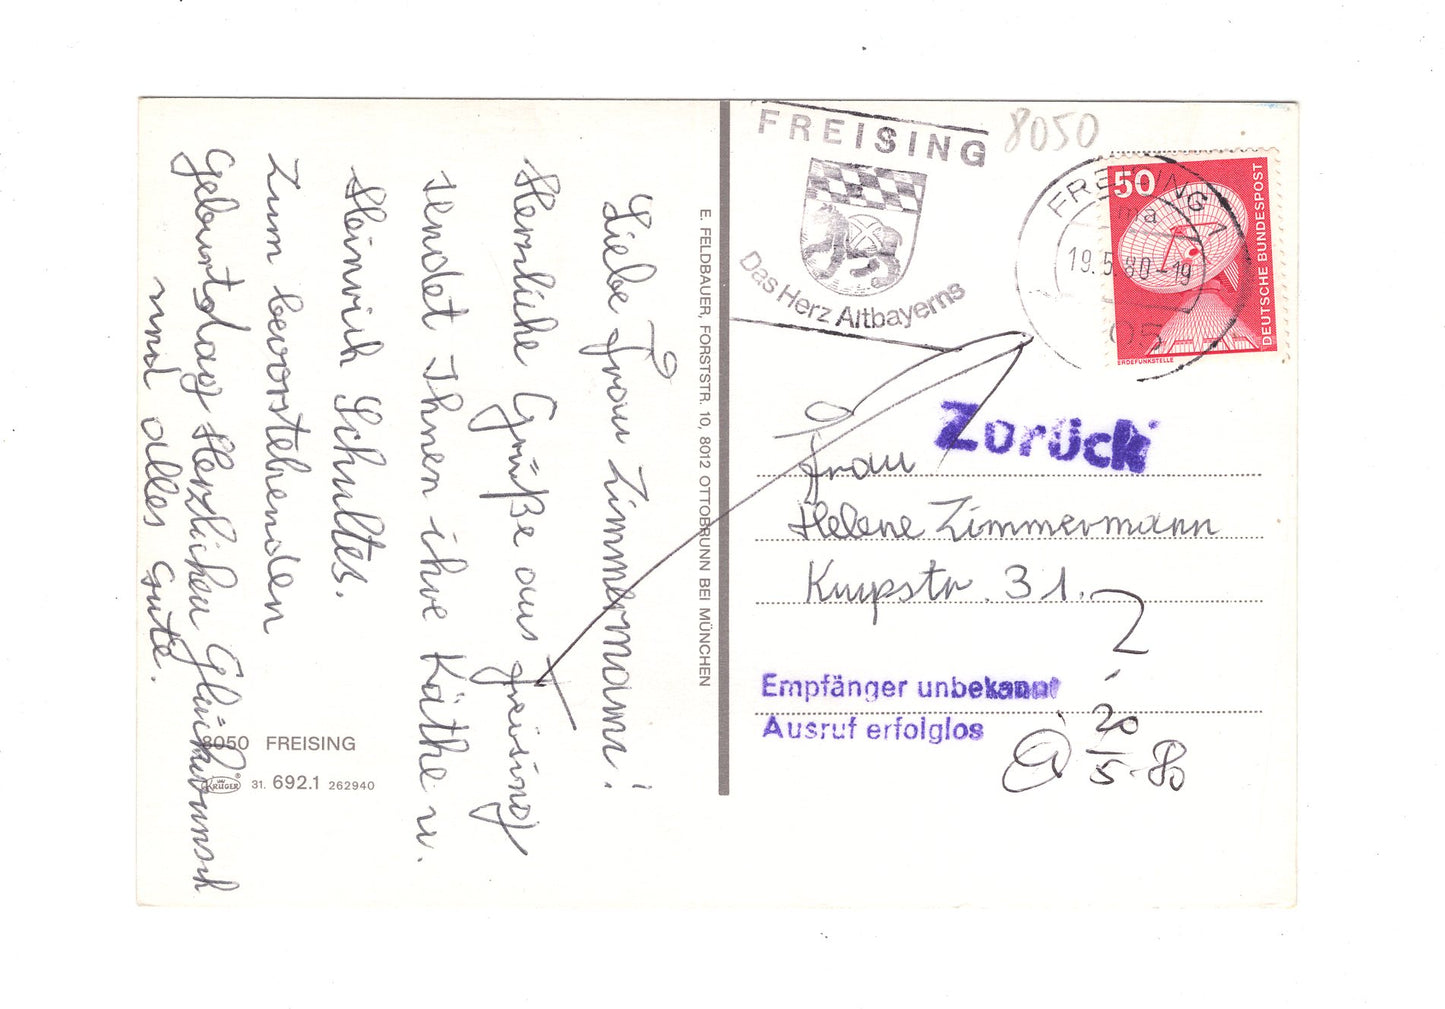 Liebe Frau Zimmermann!
Herzliche Grüße aus Freising
sendet Ihnen ihre Käthe u.
Heinrich Schultes.
Zum bevorstehenden
Geburtsdag Herzlichen Glückwunsch
und alles Gute.
8050 FREISING
KRÜGER
31. 692.1 262940
E. FELDBAUER, FORSTSTR. 10, 8012 OTTOBRUNN BEI MÜNCHEN
FREISING
Das Herz Altbayerns
8050
FREISING 1
ma
19.5.80-19
805
50
DEUTSCHE BUNDESPOST
ERDEFUNKSTELLE
Zurück
Frau
Helene Zimmermann
31.
2
Empfänger unbekannt
Ausruf erfolglos
20
5.80